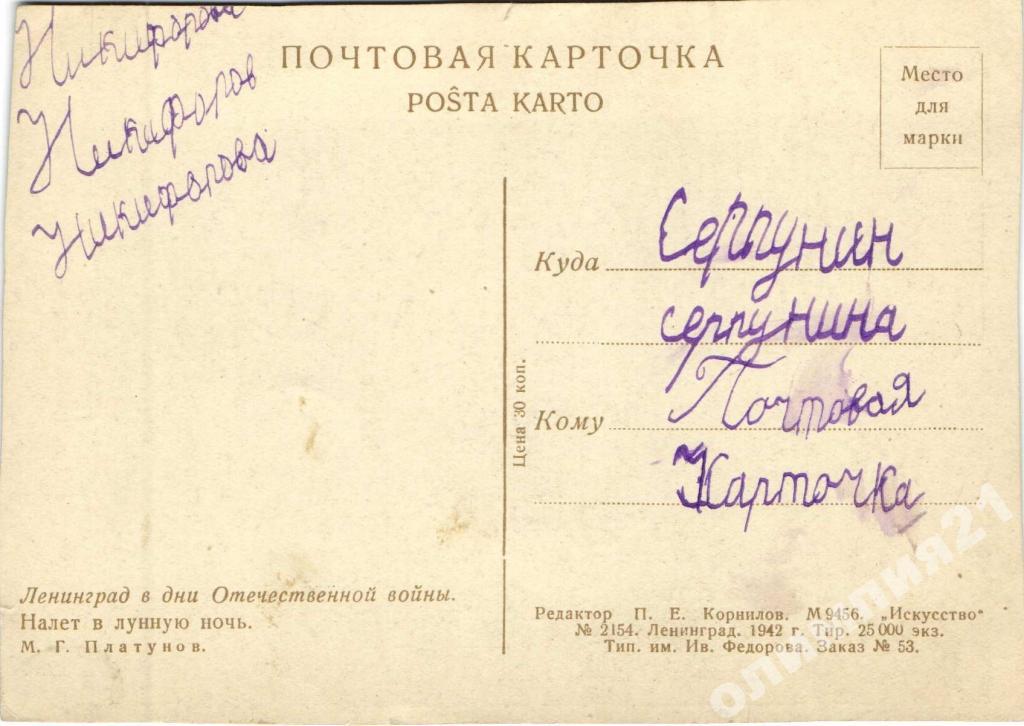 Никифорова
Никифоров
Никифорова
ПОЧТОВАЯ КАРТОЧКА
POŜTA KARTO
Место
для
марки
Куда
Серпунин
серпунина
Кому
Почтовая
Карточка
Цена 30 коп.
Ленинград в дни Отечественной войны.
Налет в лунную ночь.
М. Г. Платунов.
Редактор П. Е. Корнилов. М 9456. „Искусство“
№ 2154. Ленинград. 1942 г. Тир. 25 000 экз.
Тип. им. Ив. Федорова. Заказ № 53.
олимпия21